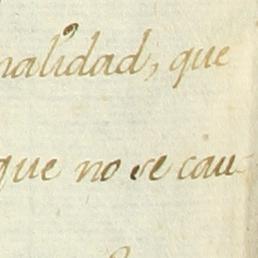 nalidad, que
que no se cau-